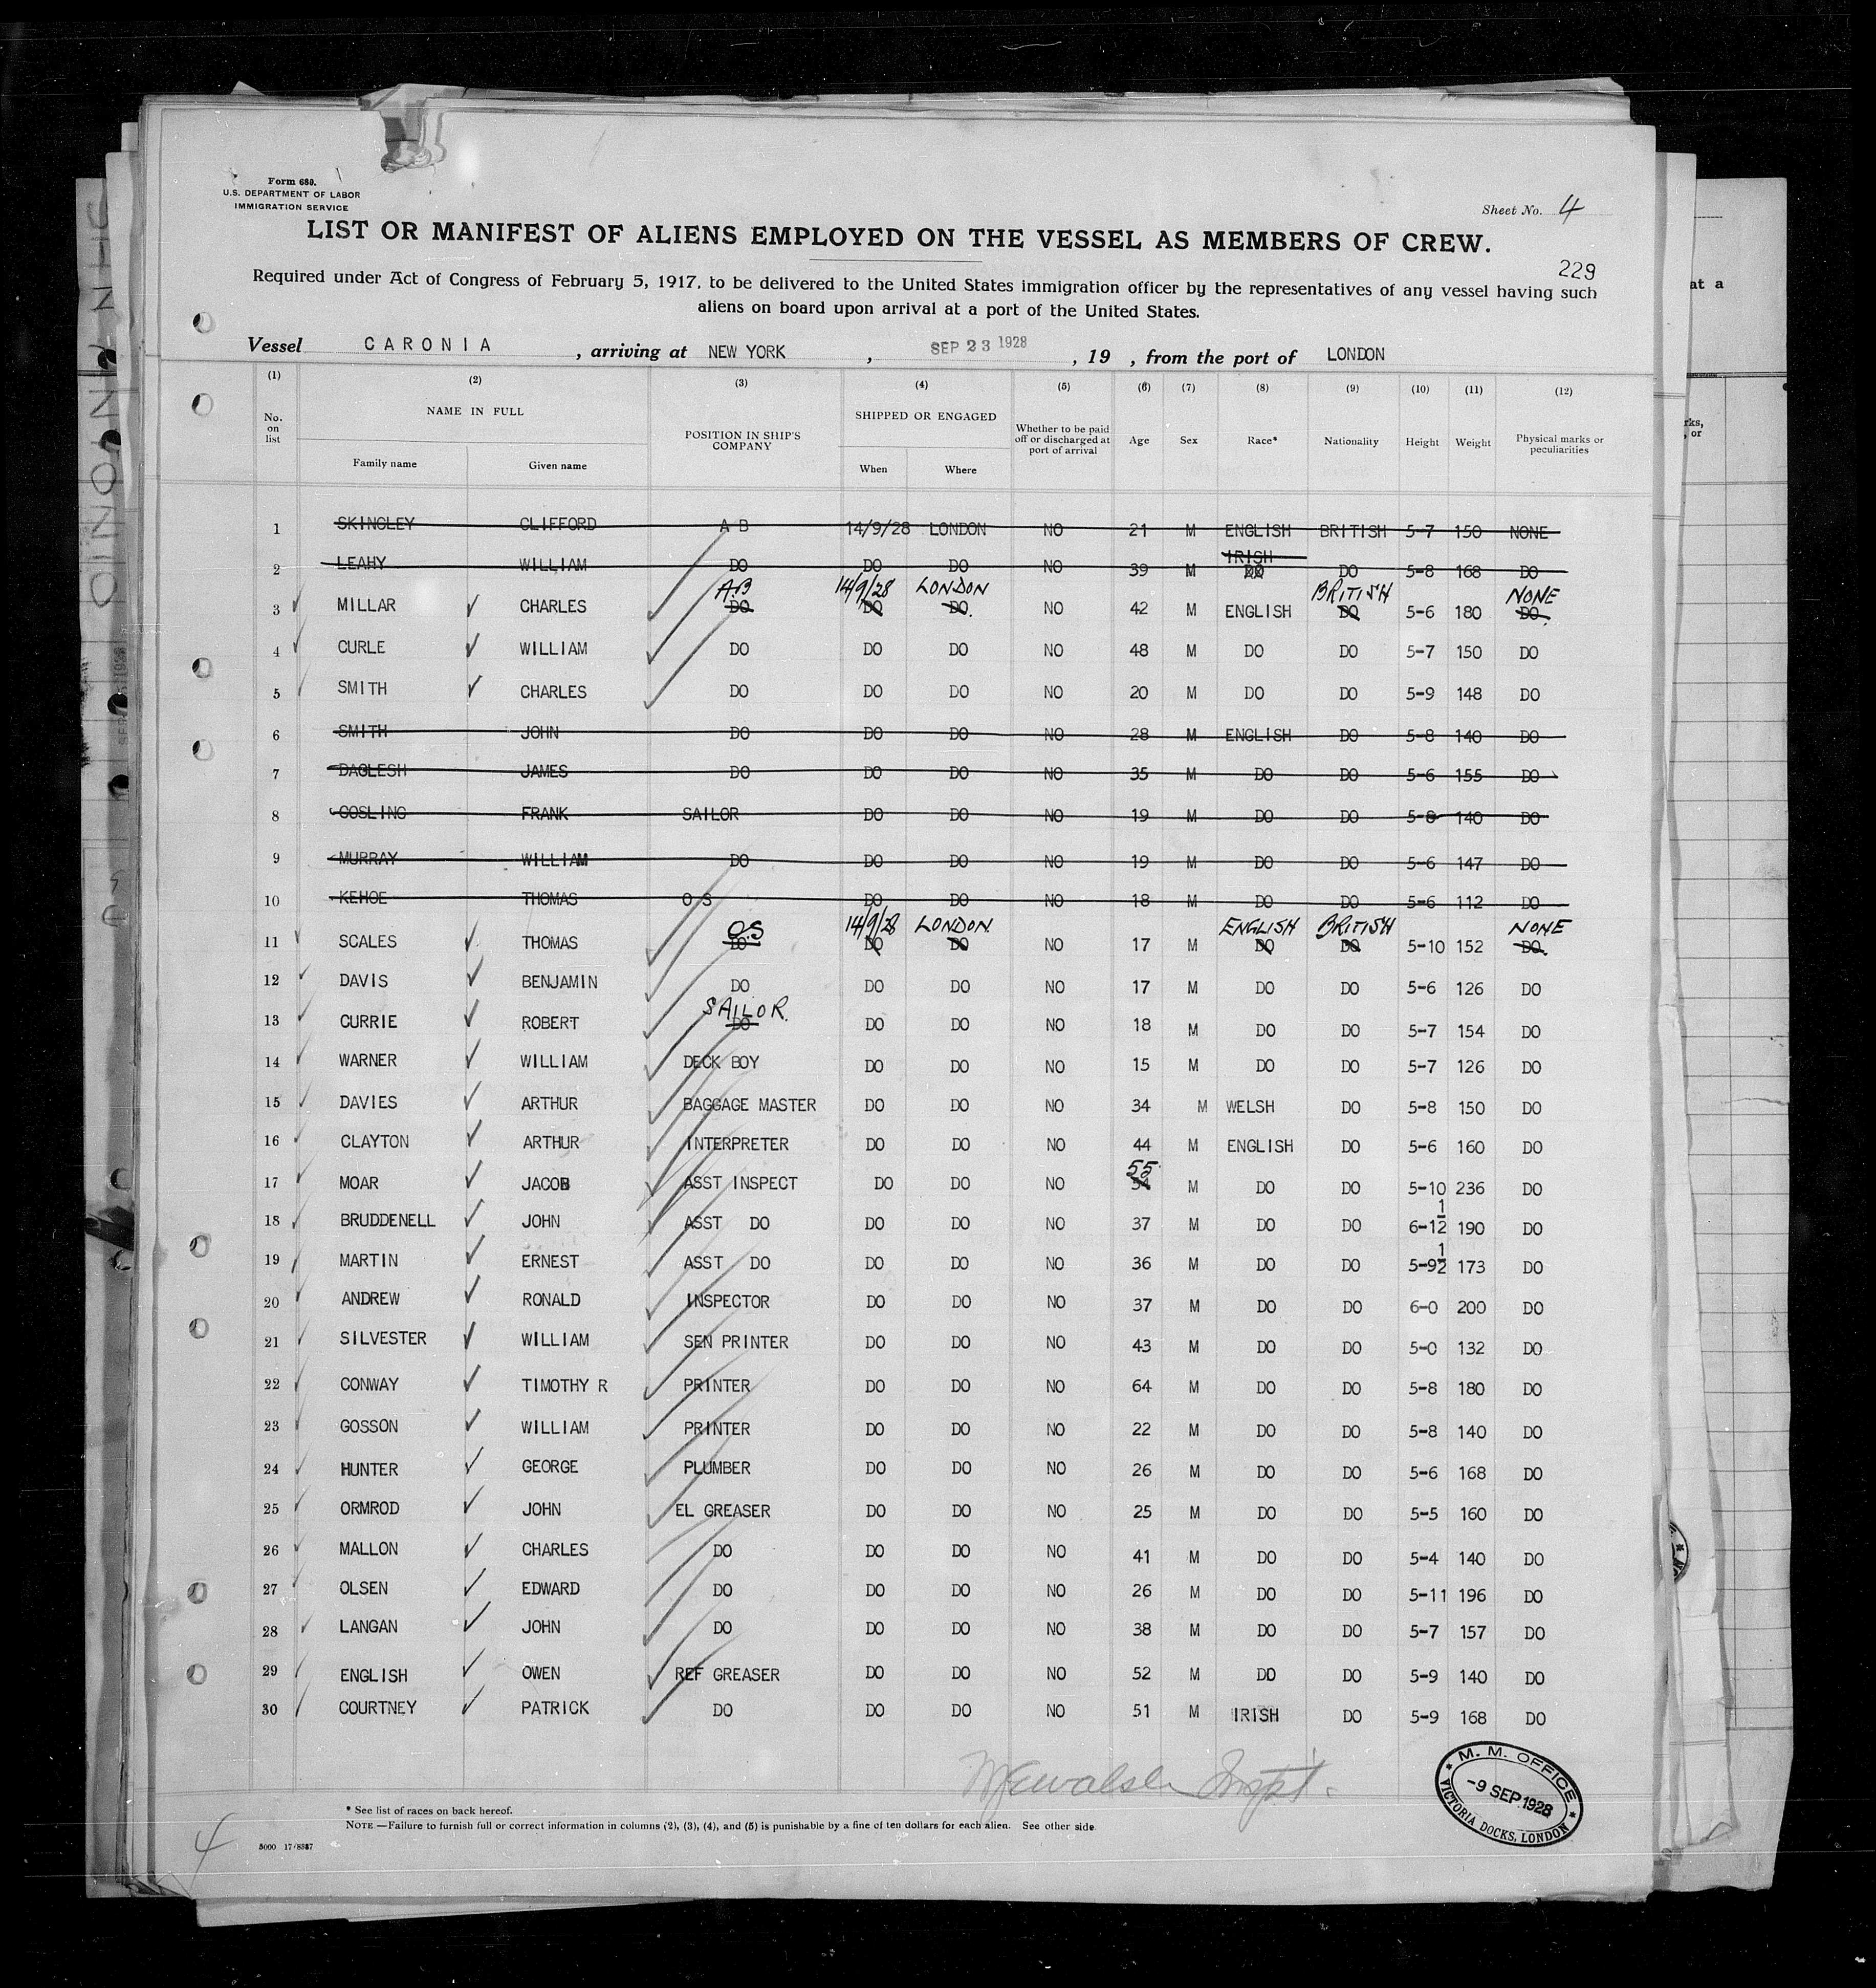 Form 689.
U.S. DEPARTMENT OF LABOR
IMMIGRATION SERVICE
Sheet No. 4
LIST OR MANIFEST OF ALIENS EMPLOYED ON THE VESSEL AS MEMBERS OF CREW.
229
Required under Act of Congress of February 5, 1917, to be delivered to the United States immigration officer by the representatives of any vessel having such
aliens on board upon arrival at a port of the United States.
Vessel CARONIA , arriving at NEW YORK , SEP 23 1928 , 19 , from the port of LONDON
(1) (2) (3) (4) (5) (6) (7) (8) (9) (10) (11) (12)
No. on list NAME IN FULL POSITION IN SHIP'S COMPANY SHIPPED OR ENGAGED Whether to be paid off or discharged at port of arrival Age Sex Race* Nationality Height Weight Physical marks or peculiarities
Family name Given name When Where
1 SKINGLEY CLIFFORD A B 14/9/28 LONDON NO 21 M ENGLISH BRITISH 5-7 150 NONE
IRISH
2 LEAHY WILLIAM DO DO DO NO 39 M DO DO 5-8 168 DO
A.B 14/9/28 LONDON BRITISH NONE
3 MILLAR CHARLES DO DO DO. NO 42 M ENGLISH DO 5-6 180 DO.
4 CURLE WILLIAM DO DO DO NO 48 M DO DO 5-7 150 DO
5 SMITH CHARLES DO DO DO NO 20 M DO DO 5-9 148 DO
6 SMITH JOHN DO DO DO NO 28 M ENGLISH DO 5-8 140 DO
7 DAGLESH JAMES DO DO DO NO 35 M DO DO 5-6 155 DO
8 GOSLING FRANK SAILOR DO DO NO 19 M DO DO 5-8 140 DO
9 MURRAY WILLIAM DO DO DO NO 19 M DO DO 5-6 147 DO
10 KEHOE THOMAS O S DO DO NO 18 M DO DO 5-6 112 DO
O.S 14/9/28 LONDON ENGLISH BRITISH NONE
11 SCALES THOMAS DO DO DO NO 17 M DO DO 5-10 152 DO.
12 DAVIS BENJAMIN DO DO DO NO 17 M DO DO 5-6 126 DO
SAILOR.
13 CURRIE ROBERT DO DO DO NO 18 M DO DO 5-7 154 DO
14 WARNER WILLIAM DECK BOY DO DO NO 15 M DO DO 5-7 126 DO
15 DAVIES ARTHUR BAGGAGE MASTER DO DO NO 34 M WELSH DO 5-8 150 DO
16 CLAYTON ARTHUR INTERPRETER DO DO NO 44 M ENGLISH DO 5-6 160 DO
55
17 MOAR JACOB ASST INSPECT DO DO NO 54 M DO DO 5-10 236 DO
18 BRUDDENELL JOHN ASST DO DO DO NO 37 M DO DO 6-1½ 190 DO
19 MARTIN ERNEST ASST DO DO DO NO 36 M DO DO 5-9½ 173 DO
20 ANDREW RONALD INSPECTOR DO DO NO 37 M DO DO 6-0 200 DO
21 SILVESTER WILLIAM SEN PRINTER DO DO NO 43 M DO DO 5-0 132 DO
22 CONWAY TIMOTHY R PRINTER DO DO NO 64 M DO DO 5-8 180 DO
23 GOSSON WILLIAM PRINTER DO DO NO 22 M DO DO 5-8 140 DO
24 HUNTER GEORGE PLUMBER DO DO NO 26 M DO DO 5-6 168 DO
25 ORMROD JOHN EL GREASER DO DO NO 25 M DO DO 5-5 160 DO
26 MALLON CHARLES DO DO DO NO 41 M DO DO 5-4 140 DO
27 OLSEN EDWARD DO DO DO NO 26 M DO DO 5-11 196 DO
28 LANGAN JOHN DO DO DO NO 38 M DO DO 5-7 157 DO
29 ENGLISH OWEN REF GREASER DO DO NO 52 M DO DO 5-9 140 DO
30 COURTNEY PATRICK DO DO DO NO 51 M IRISH DO 5-9 168 DO
M. M. OFFICE
-9 SEP 1928
VICTORIA DOCKS, LONDON
* See list of races on back hereof.
NOTE.—Failure to furnish full or correct information in columns (2), (3), (4), and (5) is punishable by a fine of ten dollars for each alien. See other side
4
at a
rks,
, or